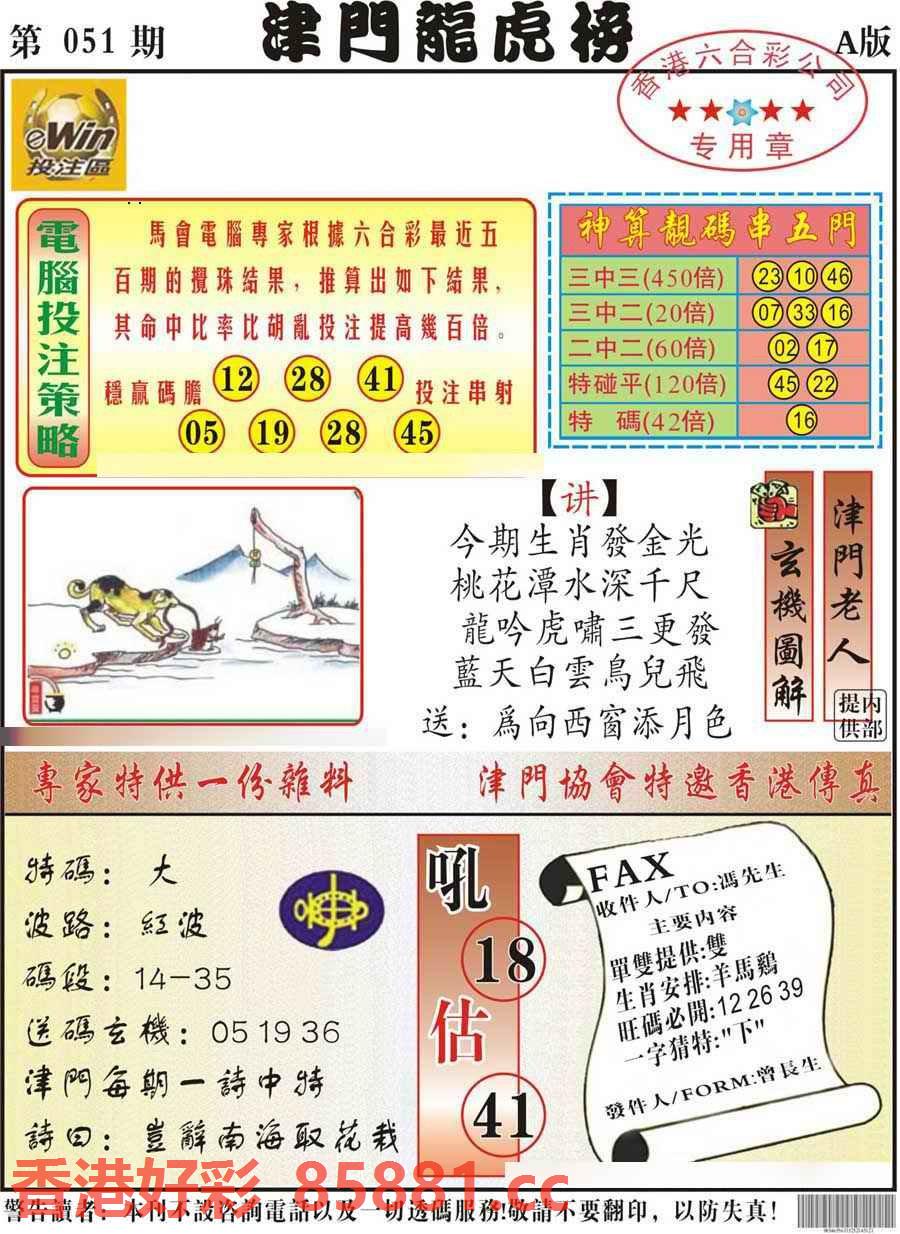 第 051 期
津門龍虎榜
A版
香港六合彩公司
专用章
eWin
投注區
電腦投注策略
馬會電腦專家根據六合彩最近五
百期的攪珠結果，推算出如下結果，
其命中比率比胡亂投注提高幾百倍。
穩贏碼膽 12 28 41 投注串射
05 19 28 45
神算靚碼串五門
三中三(450倍) 23 10 46
三中二(20倍) 07 33 16
二中二(60倍) 02 17
特碰平(120倍) 45 22
特 碼(42倍) 16
【讲】
今期生肖發金光
桃花潭水深千尺
龍吟虎嘯三更發
藍天白雲鳥兒飛
送：爲向西窗添月色
玄機圖解
津門老人
内部提供
專家特供一份雜料
津門協會特邀香港傳真
特碼：大
波路：紅波
碼段：14-35
送碼玄機：05 19 36
津門每期一詩中特
詩曰：豈辭南海取花栽
吼
18
估
41
FAX
收件人/TO:馮先生
主要内容
單雙提供:雙
生肖安排:羊馬鷄
旺碼必開:12 26 39
一字猜特:"下"
發件人/FORM:曾長生
香港好彩 85881.cc
警告讀者：本刊不設咨詢電話以及一切透碼服務!敬請不要翻印，以防失真!